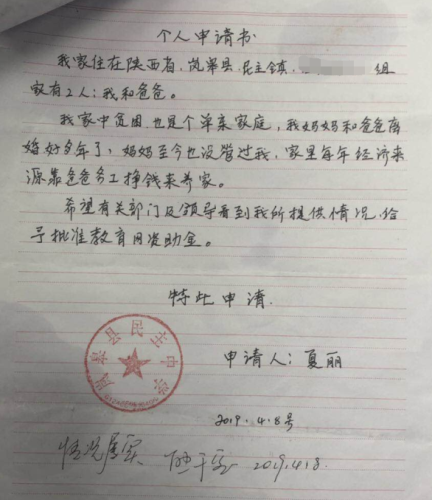 个人申请书
我家住在陕西省,岚皋县,民主镇, 组
家有2人:我和爸爸。
我家中贫困,也是个单亲家庭,我妈妈和爸爸离
婚好多年了,妈妈至今也没管过我,家里每年经济来
源靠爸爸务工挣钱来养家。
希望有关部门及领导看到我所提供情况,给
予批准教育网资助金。
特此申请.
岚皋县民主中学
申请人:夏丽
2019.4.8号
情况属实 2019.4.8.